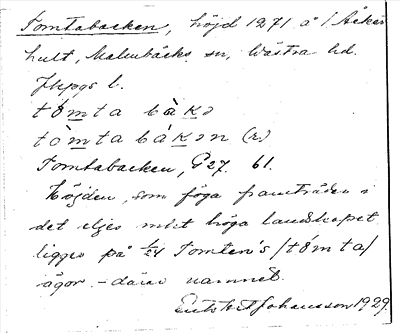 Tomtabacken, höjd 1271 å 1 Åker
hult, Malmbäcks sn, Västra hd.
Jkpgs l.
tòmta bàkə
tòmta bákən (r.)
Tomtabacken, G 27. 61.
Höjden, som föga framträder i
det eljes mkt höga landskapet
ligger på 1/24 Tomten's /tòmta/
ägor. - därav namnet.
Johansson 1929.